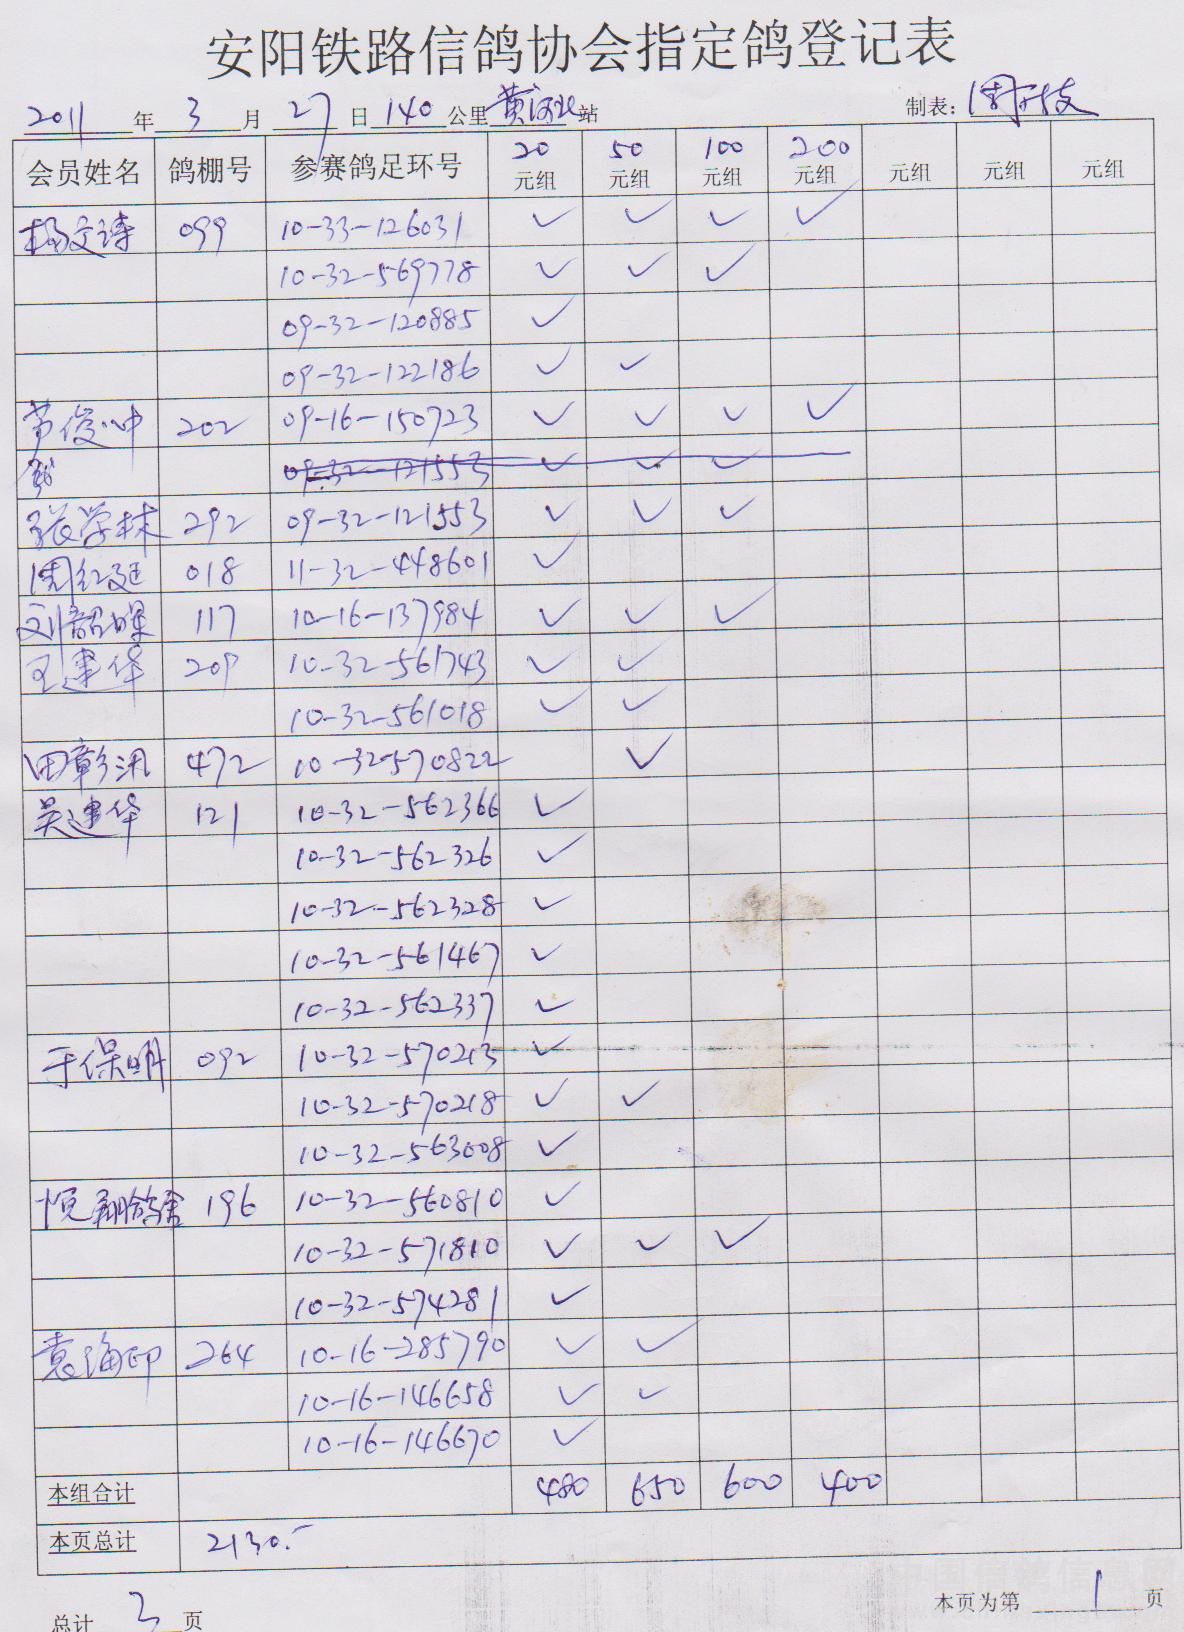 安阳铁路信鸽协会指定鸽登记表
2011 年 3 月 27 日 140 公里 黄河北 站 制表:
会员姓名 鸽棚号 参赛鸽足环号 20元组 50元组 100元组 200元组 元组 元组 元组
杨文涛 099 10-33-126031 ✓ ✓ ✓ ✓
10-32-569778 ✓ ✓ ✓
09-32-120885 ✓
09-32-122186 ✓ ✓
202 09-16-150723 ✓ ✓ ✓ ✓
09-32-121553 ✓ ✓ ✓
张学林 292 09-32-121553 ✓ ✓ ✓
周红廷 018 11-32-448601 ✓
刘韶峰 117 10-16-137984 ✓ ✓ ✓
王建华 209 10-32-561743 ✓ ✓
10-32-561018 ✓ ✓
田彰汛 472 10-32-570822 ✓
吴建华 121 10-32-562366 ✓
10-32-562326 ✓
10-32-562328 ✓
10-32-561467 ✓
10-32-562337 ✓
于保明 092 10-32-570213 ✓
10-32-570218 ✓ ✓
10-32-563008 ✓
悦翔鸽舍 196 10-32-560810 ✓
10-32-571810 ✓ ✓ ✓
10-32-574281 ✓
袁海印 264 10-16-285790 ✓ ✓
10-16-146658 ✓ ✓
10-16-146670 ✓
本组合计 480 650 600 400
本页总计 2130.-
总计 3 页 本页为第 1 页